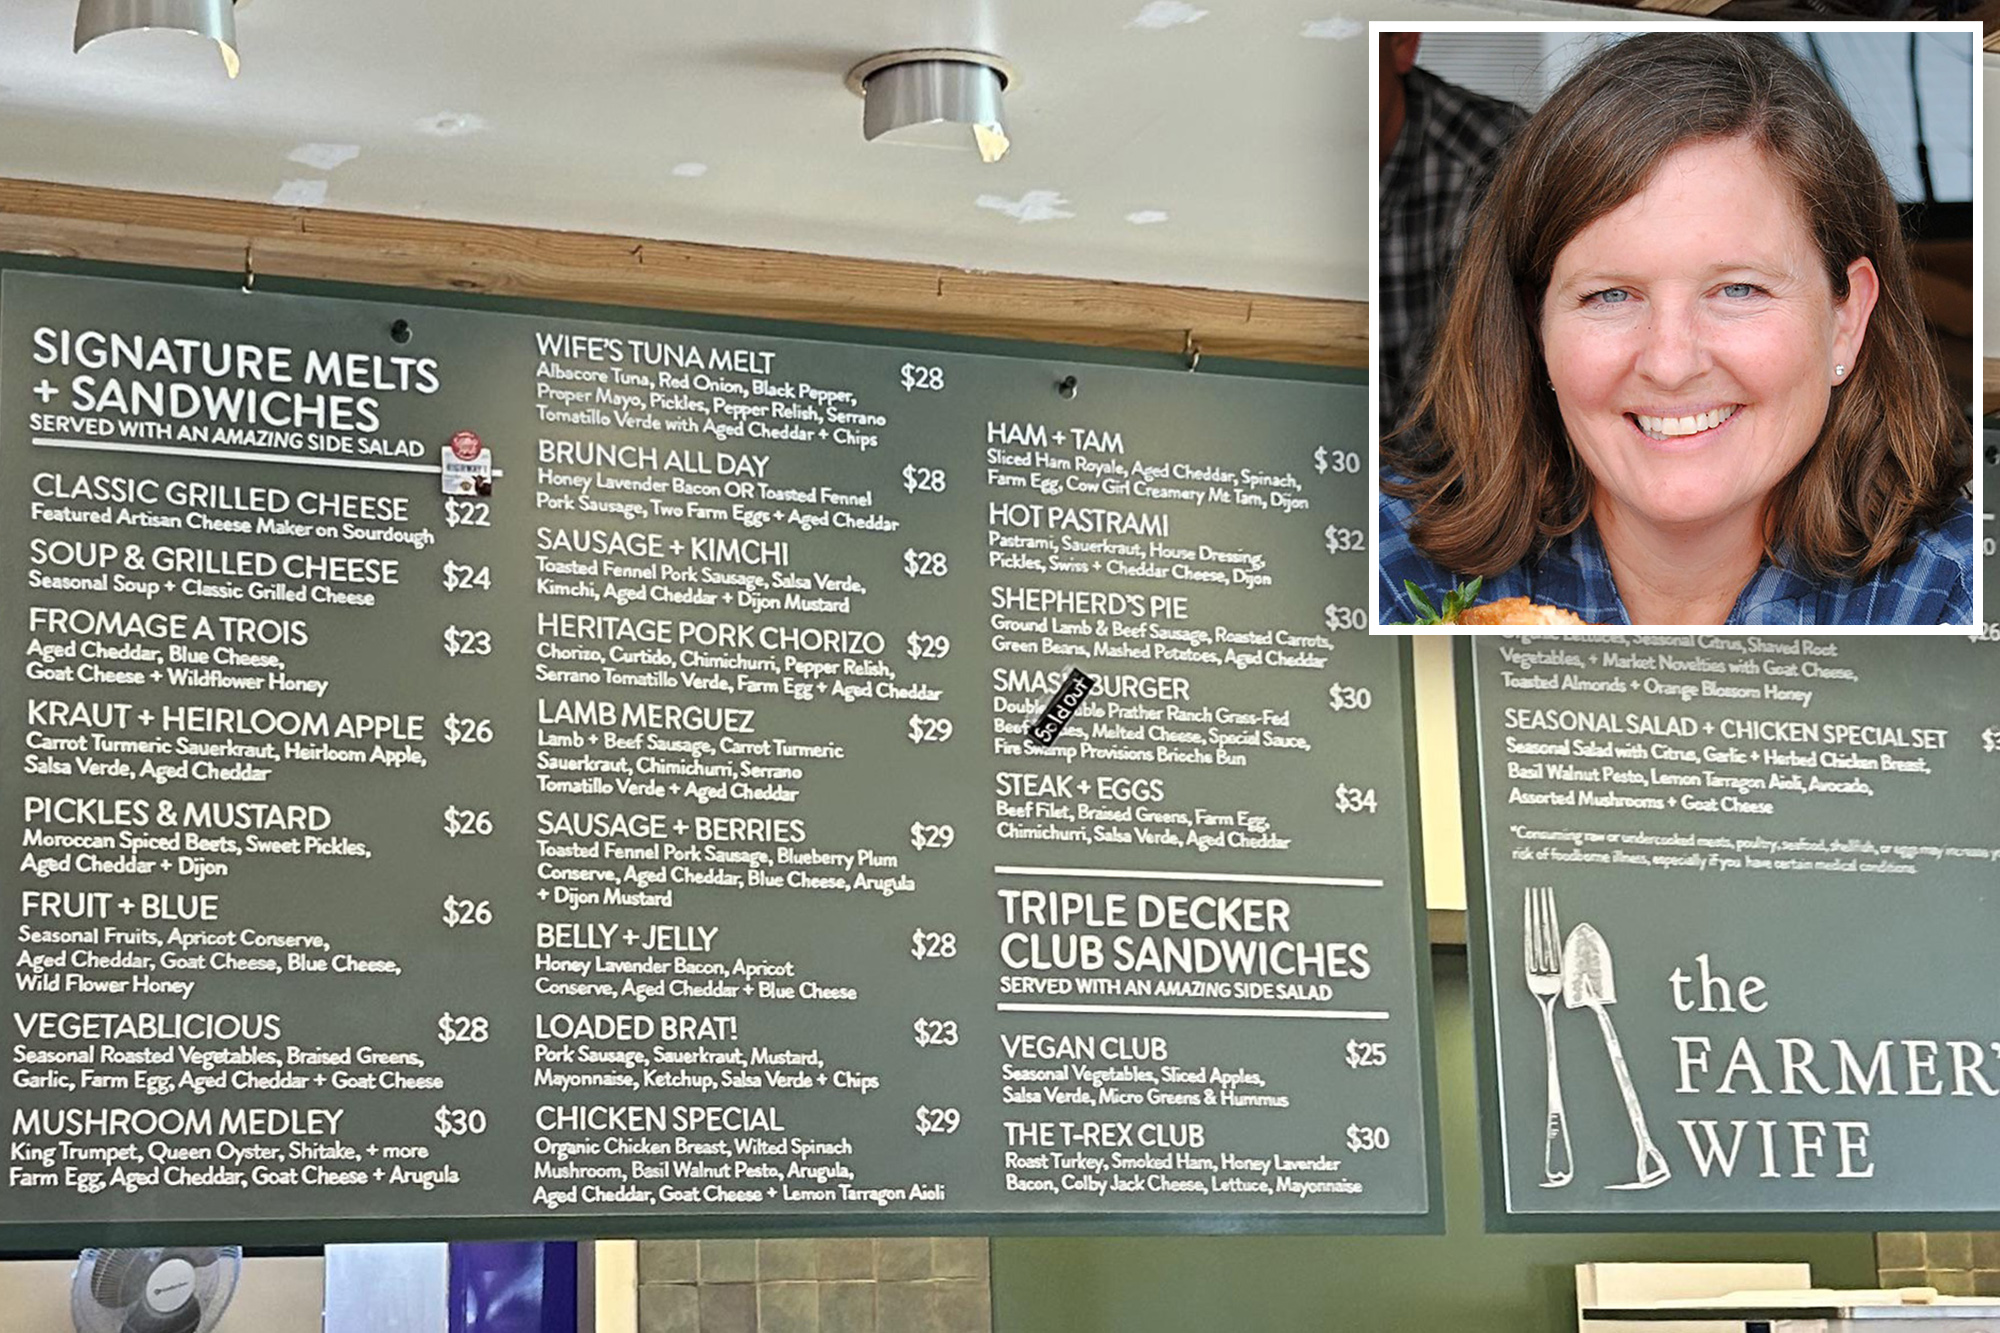 SIGNATURE MELTS
+ SANDWICHES
SERVED WITH AN AMAZING SIDE SALAD
CLASSIC GRILLED CHEESE $22
Featured Artisan Cheese Maker on Sourdough
SOUP & GRILLED CHEESE $24
Seasonal Soup + Classic Grilled Cheese
FROMAGE A TROIS $23
Aged Cheddar, Blue Cheese,
Goat Cheese + Wildflower Honey
KRAUT + HEIRLOOM APPLE $26
Carrot Turmeric Sauerkraut, Heirloom Apple,
Salsa Verde, Aged Cheddar
PICKLES & MUSTARD $26
Moroccan Spiced Beets, Sweet Pickles,
Aged Cheddar + Dijon
FRUIT + BLUE $26
Seasonal Fruits, Apricot Conserve,
Aged Cheddar, Goat Cheese, Blue Cheese,
Wild Flower Honey
VEGETABLICIOUS $28
Seasonal Roasted Vegetables, Braised Greens,
Garlic, Farm Egg, Aged Cheddar + Goat Cheese
MUSHROOM MEDLEY $30
King Trumpet, Queen Oyster, Shitake, + more
Farm Egg, Aged Cheddar, Goat Cheese + Arugula
WIFE'S TUNA MELT $28
Albacore Tuna, Red Onion, Black Pepper,
Proper Mayo, Pickles, Pepper Relish, Serrano
Tomatillo Verde with Aged Cheddar + Chips
BRUNCH ALL DAY $28
Honey Lavender Bacon OR Toasted Fennel
Pork Sausage, Two Farm Eggs + Aged Cheddar
SAUSAGE + KIMCHI $28
Toasted Fennel Pork Sausage, Salsa Verde,
Kimchi, Aged Cheddar + Dijon Mustard
HERITAGE PORK CHORIZO $29
Chorizo, Curtido, Chimichurri, Pepper Relish,
Serrano Tomatillo Verde, Farm Egg + Aged Cheddar
LAMB MERGUEZ $29
Lamb + Beef Sausage, Carrot Turmeric
Sauerkraut, Chimichurri, Serrano
Tomatillo Verde + Aged Cheddar
SAUSAGE + BERRIES $29
Toasted Fennel Pork Sausage, Blueberry Plum
Conserve, Aged Cheddar, Blue Cheese, Arugula
+ Dijon Mustard
BELLY + JELLY $28
Honey Lavender Bacon, Apricot
Conserve, Aged Cheddar + Blue Cheese
LOADED BRAT! $23
Pork Sausage, Sauerkraut, Mustard,
Mayonnaise, Ketchup, Salsa Verde + Chips
CHICKEN SPECIAL $29
Organic Chicken Breast, Wilted Spinach
Mushroom, Basil Walnut Pesto, Arugula,
Aged Cheddar, Goat Cheese + Lemon Tarragon Aioli
HAM + TAM $30
Sliced Ham Royale, Aged Cheddar, Spinach,
Farm Egg, Cow Girl Creamery Mt Tam, Dijon
HOT PASTRAMI $32
Pastrami, Sauerkraut, House Dressing,
Pickles, Swiss + Cheddar Cheese, Dijon
SHEPHERD'S PIE $30
Ground Lamb & Beef Sausage, Roasted Carrots,
Green Beans, Mashed Potatoes, Aged Cheddar
SMAS BURGER $30
Sold out
Double Prather Ranch Grass-Fed
Beef Melted Cheese, Special Sauce,
Fire Swamp Provisions Brioche Bun
STEAK + EGGS $34
Beef Filet, Braised Greens, Farm Egg,
Chimichurri, Salsa Verde, Aged Cheddar
TRIPLE DECKER
CLUB SANDWICHES
SERVED WITH AN AMAZING SIDE SALAD
VEGAN CLUB $25
Seasonal Vegetables, Sliced Apples,
Salsa Verde, Micro Greens & Hummus
THE T-REX CLUB $30
Roast Turkey, Smoked Ham, Honey Lavender
Bacon, Colby Jack Cheese, Lettuce, Mayonnaise
Organic Lettuces, Seasonal Citrus, Shaved Root
Vegetables, + Market Novelties with Goat Cheese,
Toasted Almonds + Orange Blossom Honey
SEASONAL SALAD + CHICKEN SPECIAL SET
Seasonal Salad with Citrus, Garlic + Herbed Chicken Breast,
Basil Walnut Pesto, Lemon Tarragon Aioli, Avocado,
Assorted Mushrooms + Goat Cheese
*Consuming raw or undercooked meats, poultry, seafood, shellfish, or eggs may increase
risk of foodborne illness, especially if you have certain medical conditions.
the
FARMER'
WIFE